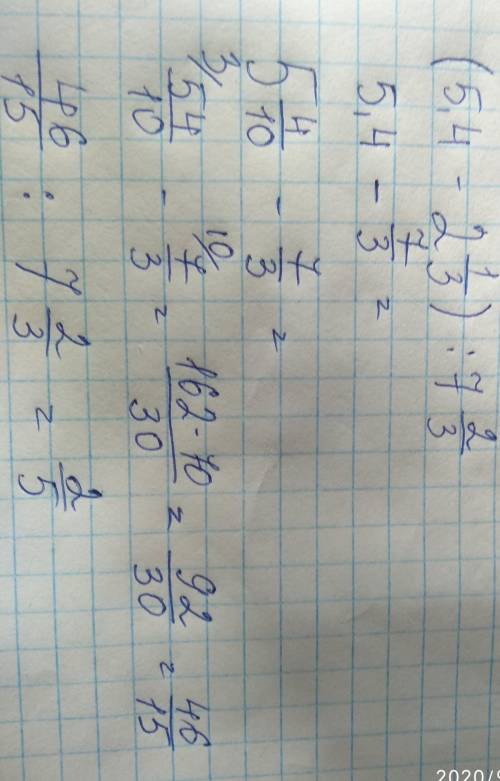 (5,4 - 2 1/3) : 7 2/3
5,4 - 7/3 =
5 4/10 - 7/3 =
3/ 54/10 - 10/ 7/3 = 162-70/30 = 92/30 = 46/15
46/15 : 7 2/3 = 2/5